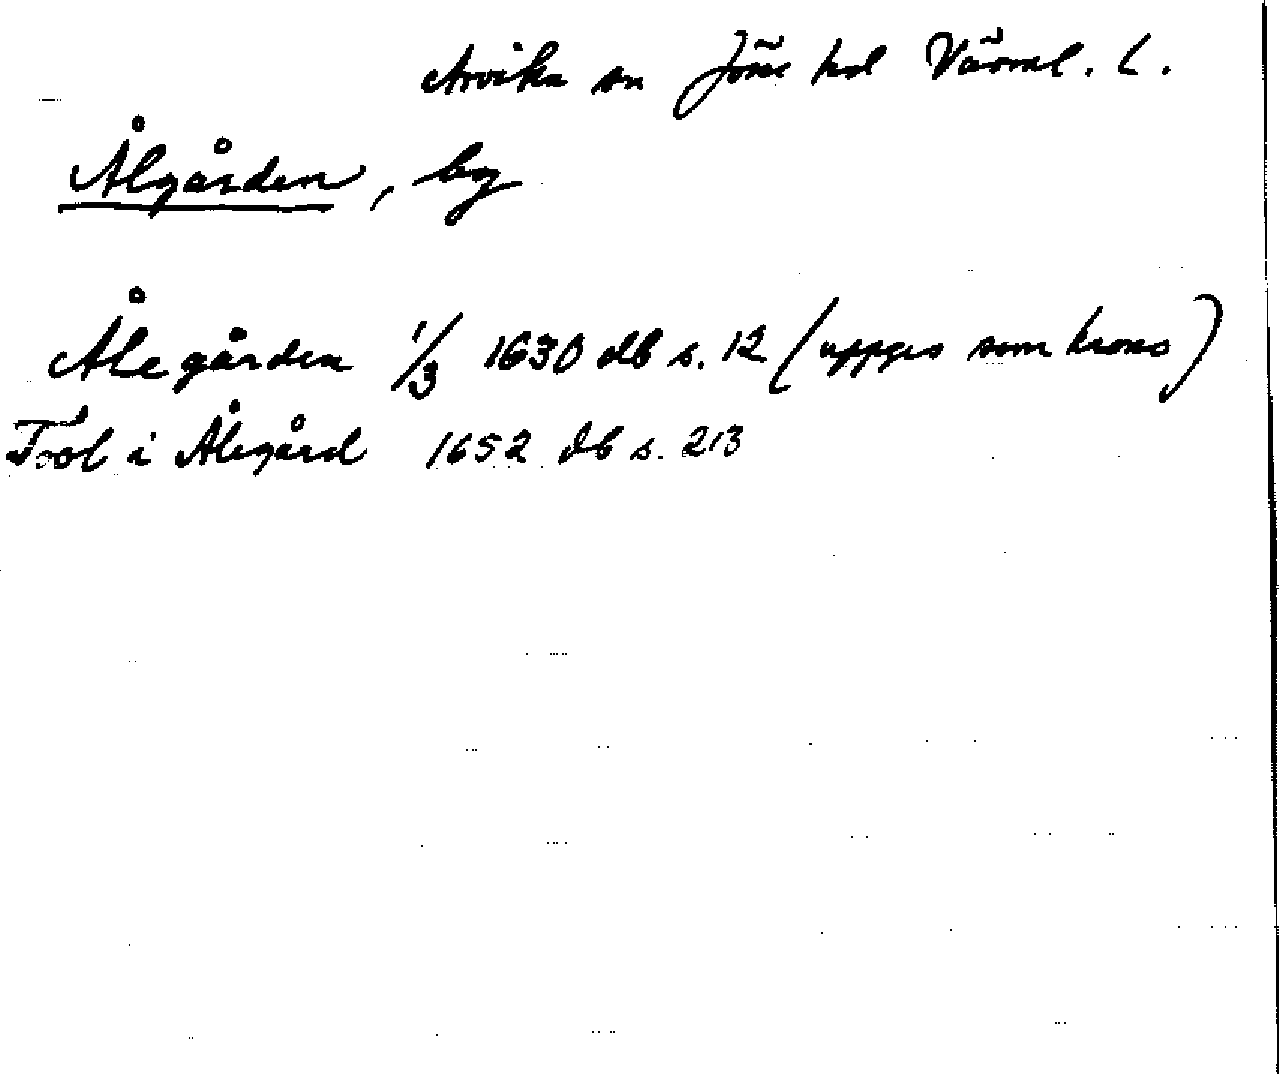 Arvika sn Jösse hd Värml. L.
Ålgården, by
Ålegården 1/3 1630 db s. 12 (uppges som krono)
i Ålegård 1652 db s. 213